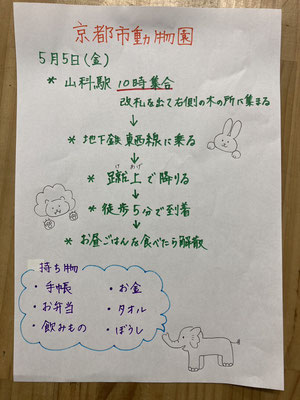 京都市動物園
5月5日(金)
* 山科駅 10時集合
改札を出て右側の木の所に集まる
↓
* 地下鉄 東西線に乗る
↓
けあげ
* 蹴上で降りる
↓
* 徒歩5分で到着
↓
* お昼ごはんを食べたら解散
持ち物
・手帳 ・お金
・お弁当 ・タオル
・飲みもの ・ぼうし